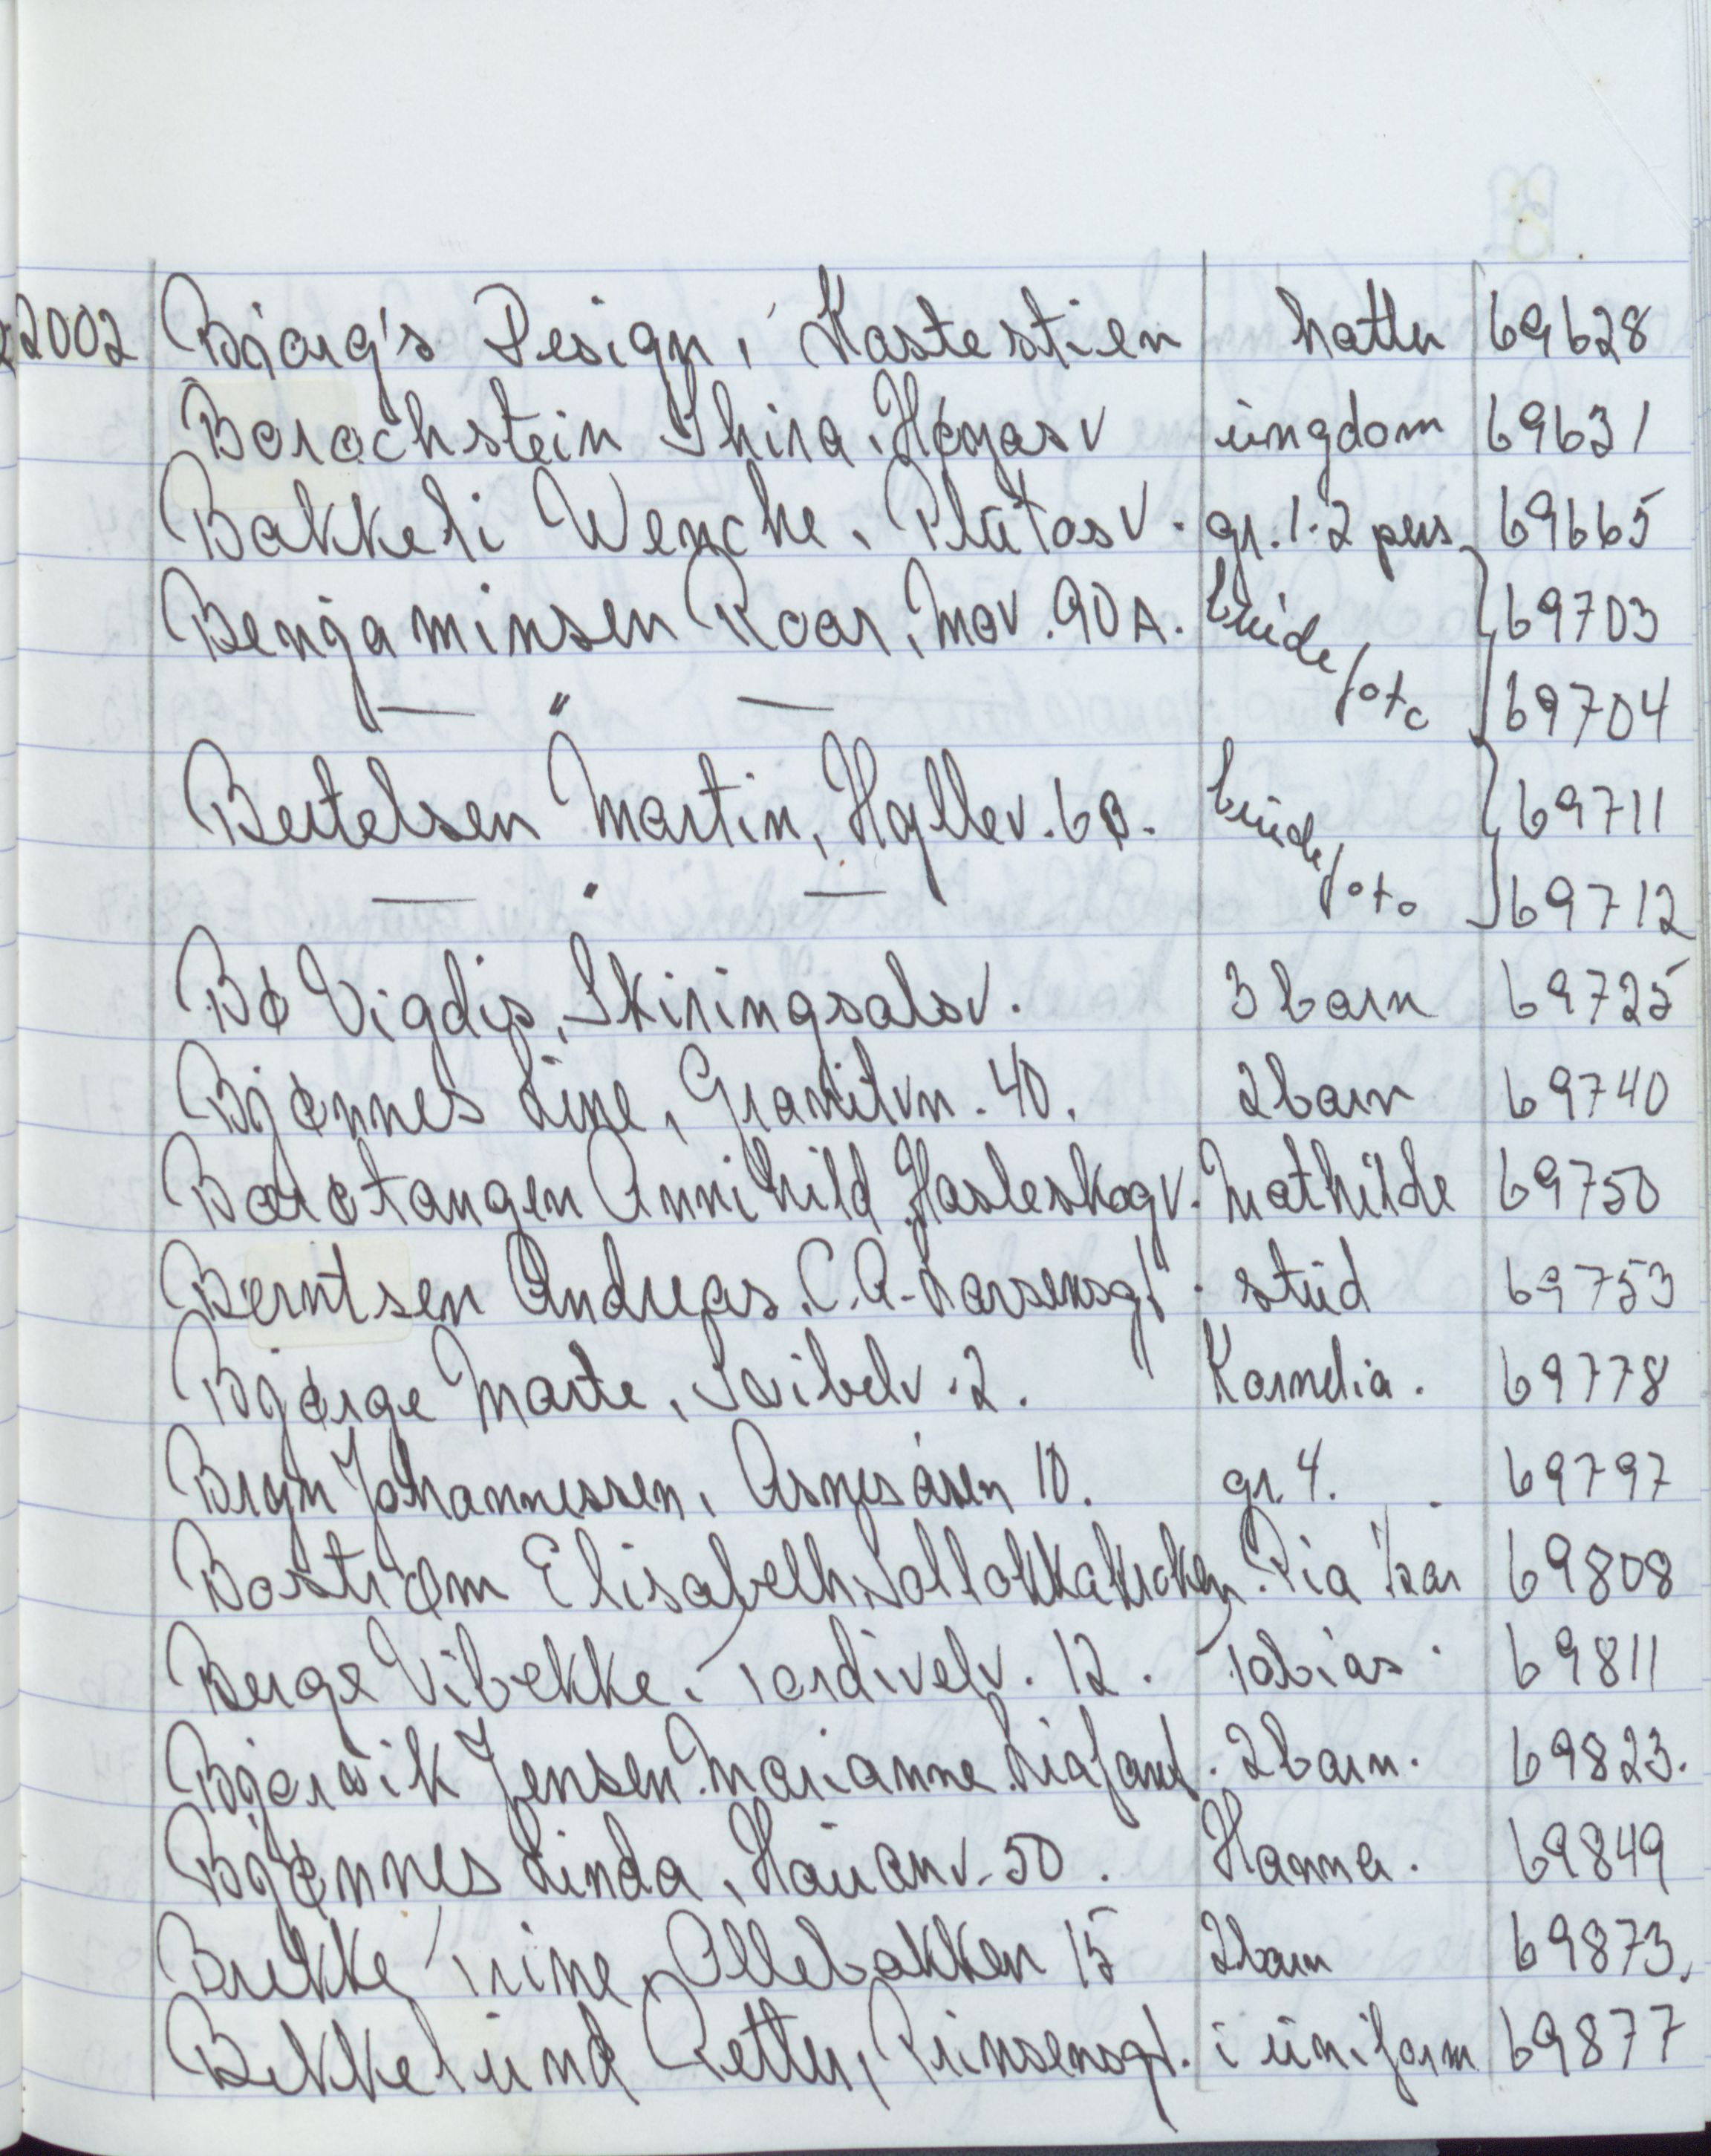 2002 Bjørg's Design, Kastestien hatter 69628
Borochstein Shira, Høyas v ungdom 69631
Bakkeli Wenche, Plutos v. gr. 1-2 pers. 69665
Benjaminsen Roar, Mov. 90 A. brude 69703
— " — foto 69704
Bertelsen Martin, Hyllev. 6B. brude 69711
— " — foto 69712
Bø Vigdis, Skiringsalsv. 3 barn 69725
Bjønnes Line, Granitvn. 40. 2 barn 69740
Barstangen Annihild Hasleskogv. Mathilde 69750
Berntsen Andreas, C.A. Larsensgt. stud 69753
Bjørge Marte, 2. Kornelia. 69778
Bryn Johannessen, Asnesåsen 10. gr. 4. 69797
Bostrøm Elisabeth, Solløkkakroken. Pia 69808
Berge Vibekke, Tordivelv. 12. Tobias 69811
Bjørvik Jensen Marianne. 2 barn. 69823.
Bjønnes Linda, Hauanv. 50. Hanna. 69849
Brekke Trine, Ollebakken 15 2 barn 69873.
Bekkelund Petter, Prinsensgt. i uniform 69877